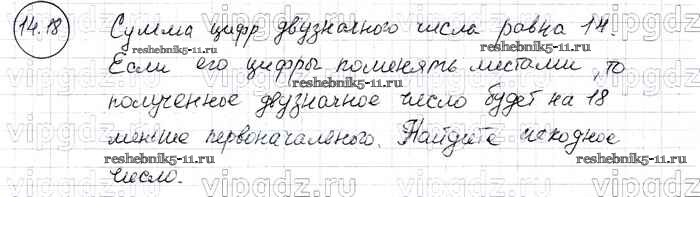 14.18 Сумма цифр двузначного числа равна 14.
reshebnik5-11.ru reshebnik5-11.ru
Если его цифры поменять местами, то
reshebnik5-11.ru
полученное двузначное число будет на 18
vipgdz.ru vipgdz.ru vipgdz.ru
меньше первоначального. Найдите исходное
reshebnik5-11.ru reshebnik5-11.ru
число.
vipgdz.ru vipgdz.ru vipgdz.ru